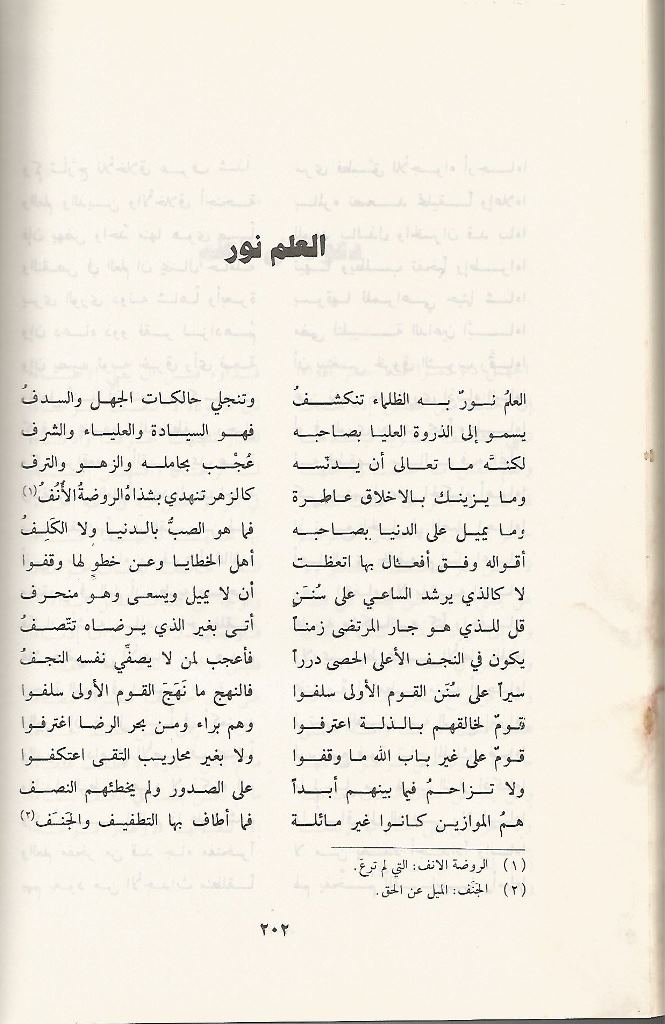 العلم نور
العلمُ نــورٌ بــه الظلماء تنكشــفُ وتنجلي حالكات الجهل والسدفُ
يسمـو إلى الذروة العليا بصاحبه فهـو السيـادة والعليـاء والشرف
لكنـَّه مـا تعـالى أن يـدنّسه عُجْـب بحاملـه والزهـو والترف
ومـا يـزينـك بـالاخلاق عـاطـرة كالزهر تنهدي بشذاهُ الروضةُ الأُنُفُ(١)
ومـا يميـل على الدنيـا بصـاحبـه فما هو الصبُّ بالـدنيـا ولا الكَلِـفُ
أقواله وفـق أفعـال بها اتعظـت أهل الخطايـا وعـن خطوٍ لها وقفـوا
لا كالذي يرشد الساعي على سُنَنٍ أن لا يميل ويسعى وهـو منحرف
قل للـذي هـو جـار المرتضى زمنـاً أتى بغير الذي يـرضـاه تتّصـفُ
يكون في النجـف الأعلى الحصى درراً فأعجب لمن لا يصفّي نفسه النجفُ
سيراً على سُنَن القـوم الأولى سلفـوا فالنهج ما نَهَجَ القوم الأولى سلفوا
قـومٌ لخالقهـم بـالـذلـة اعترفـوا وهـم براء ومـن بحر الرضـا اغترفـوا
قـومٌ على غير باب الله مـا وقفـوا ولا بغير محاريـب التقـى اعتكفـوا
ولا تـزاحـمُ فيما بينهـم أبـداً على الصدور ولم يخطئهـم النصـف
هـمُ الموازيـن كـانـوا غير مـائلـة فما أطاف بها التطفيـف والجَنَـف(٢)
(١) الروضة الانف: التي لم ترعَ.
(٢) الجَنَف: الميل عن الحق.
٢٠٢